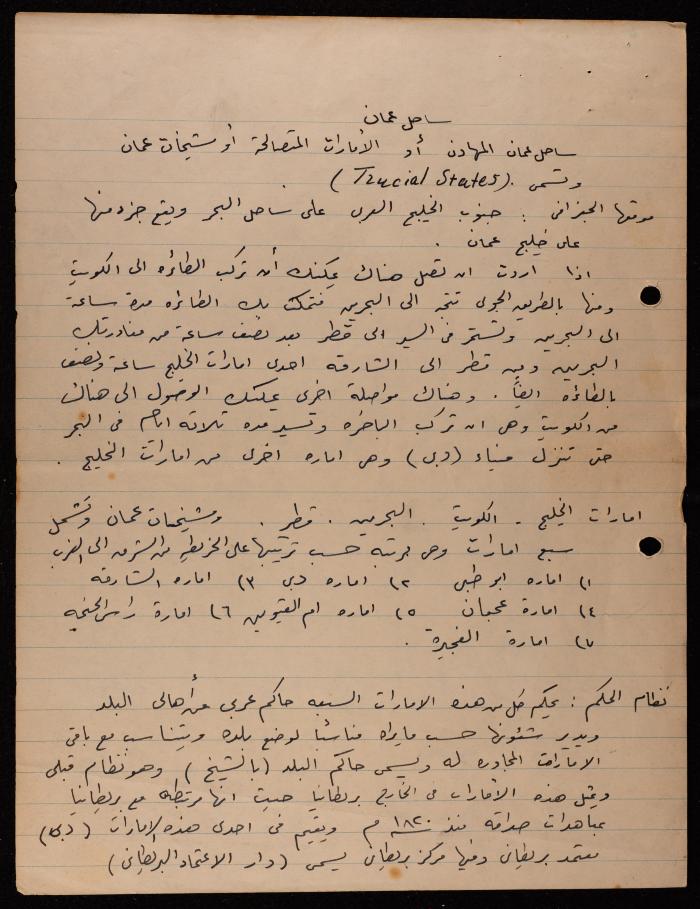 ساحل عمان
ساحل عمان المهادن أو الأمارات المتصالحة أو مشيخات عمان
وتسمى (Trucial States)
موقعها الجغرافي : جنوب الخليج العربي على ساحل البحر ويقع جزء منها
على خليج عمان .
اذا اردت ان تصل هناك يمكنك أن تركب الطائره الى الكويت
ومنها بالطريق الجوي تتجه الى البحرين فتمكث بك الطائره مدة ساعة
الى البحرين وتستمر في السير الى قطر بعد نصف ساعة من مغادرتك
البحرين ومن قطر الى الشارقه احدى امارات الخليج ساعة ونصف
بالطائره ايضاً . وهناك مواصلة اخرى يمكنك الوصول الى هناك
من الكويت وهى ان تركب الباخره وتسير مده ثلاثة ايام في البحر
حتى تنزل ميناء (دبى) وهى اماره اخرى من امارات الخليج .
امارات الخليج - الكويت . البحرين . قطر . ومشيخات عمان وتشمل
سبع امارات وهى مرتبه حسب ترتيبها على الخريطه من الشرق الى الغرب
١) اماره ابو ظبى ٢) اماره دبى ٣) اماره الشارقه
٤) امارة عجمان ٥) اماره ام القيوين ٦) امارة رأس الخيمه
٧) امارة الفجيرة .
نظام الحكم : يحكم كل من هذه الامارات السبعه حاكم عربي من أهالى البلد
ويدير شئونها حسب مايراه مناسباً لوضع بلده ويتناسب مع باقى
الامارات المجاوره له ويسمى حاكم البلد (بالشيخ) وهو نظام قبلى
ويمثل هذه الأمارات في الخارج بريطانيا حيث انها مرتبطه مع بريطانيا
بمعاهدات صداقه منذ ١٨٢٠ م ويقيم في احدى هذه الامارات (دبى)
معتمد بريطانى وفيها مركز بريطانى يسمى (دار الاعتماد البريطانى)